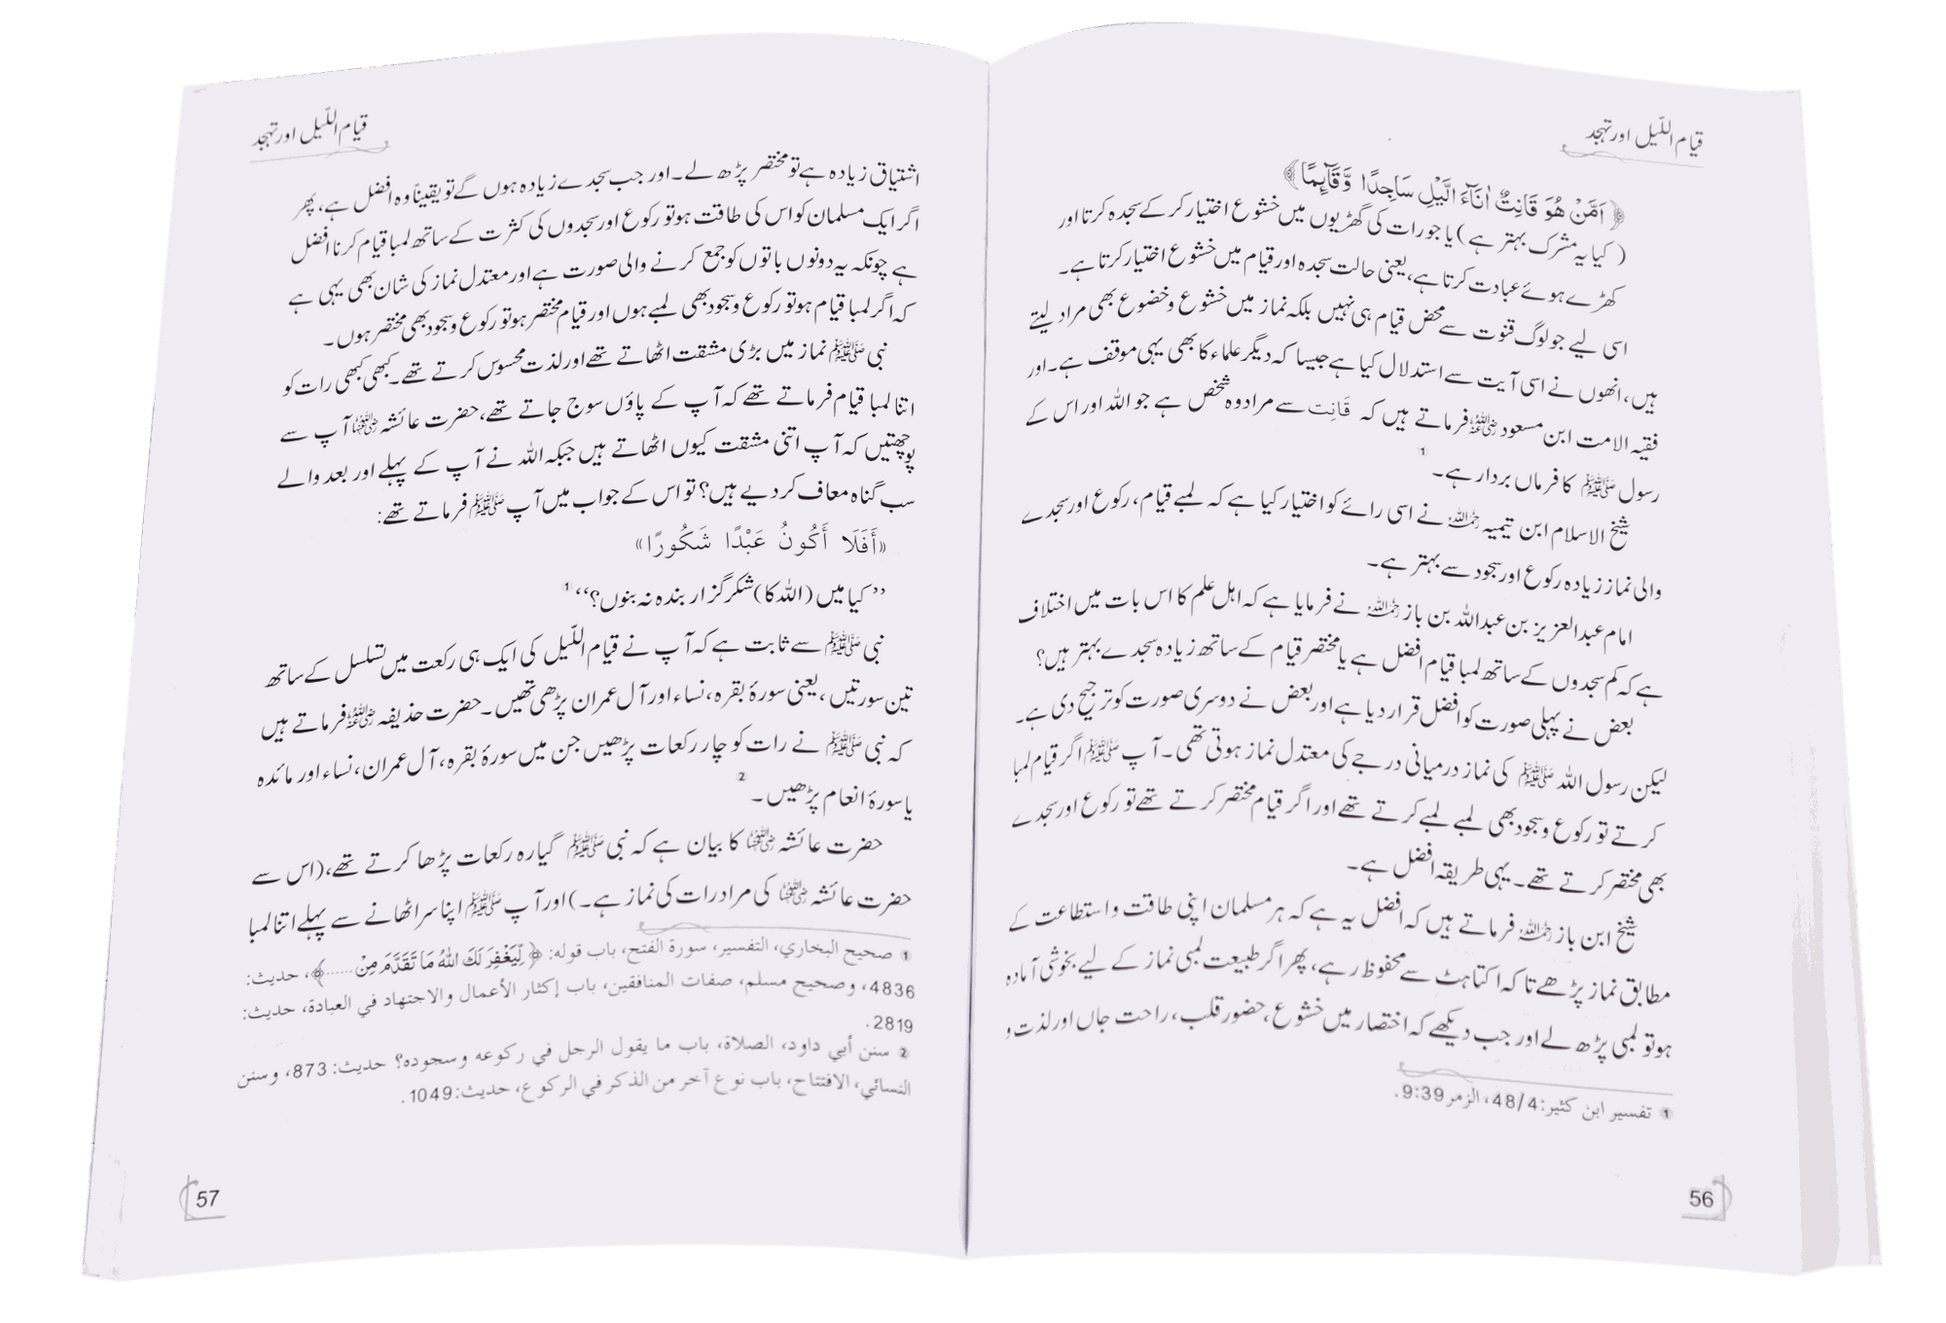 قیام اللّیل اور تہجد
﴿ اَمَّنْ هُوَ قَانِتٌ اٰنَآءَ الَّيْلِ سَاجِدًا وَّقَآىِٕمًا﴾
( کیا یہ مشرک بہتر ہے) یا جو رات کی گھڑیوں میں خشوع اختیار کر کے سجدہ کرتا اور
کھڑے ہوئے عبادت کرتا ہے، یعنی حالت سجدہ اور قیام میں خشوع اختیار کرتا ہے۔
اسی لیے جو لوگ قنوت سے محض قیام ہی نہیں بلکہ نماز میں خشوع و خضوع بھی مراد لیتے
ہیں، انھوں نے اسی آیت سے استدلال کیا ہے جیسا کہ دیگر علماء کا بھی یہی موقف ہے۔ اور
فقیہ الامت ابن مسعود رضی اللہ عنہ فرماتے ہیں کہ قَانِت سے مراد وہ شخص ہے جو اللہ اور اس کے
رسول ﷺ کا فرماں بردار ہے۔ 1
شیخ الاسلام ابن تیمیہ رحمہ اللہ نے اسی رائے کو اختیار کیا ہے کہ لمبے قیام، رکوع اور سجدے
والی نماز زیادہ رکوع اور سجود سے بہتر ہے۔
امام عبدالعزیز بن عبداللہ بن باز رحمہ اللہ نے فرمایا ہے کہ اہل علم کا اس بات میں اختلاف
ہے کہ کم سجدوں کے ساتھ لمبا قیام افضل ہے یا مختصر قیام کے ساتھ زیادہ سجدے بہتر ہیں؟
بعض نے پہلی صورت کو افضل قرار دیا ہے اور بعض نے دوسری صورت کو ترجیح دی ہے۔
لیکن رسول اللہ ﷺ کی نماز درمیانی درجے کی معتدل نماز ہوتی تھی۔ آپ ﷺ اگر قیام لمبا
کرتے تو رکوع و سجود بھی لمبے لمبے کرتے تھے اور اگر قیام مختصر کرتے تھے تو رکوع اور سجدے
بھی مختصر کرتے تھے۔ یہی طریقہ افضل ہے۔
شیخ ابن باز رحمہ اللہ فرماتے ہیں کہ افضل یہ ہے کہ ہر مسلمان اپنی طاقت و استطاعت کے
مطابق نماز پڑھے تاکہ اکتاہٹ سے محفوظ رہے، پھر اگر طبیعت لمبی نماز کے لیے بخوشی آمادہ
ہو تو لمبی پڑھ لے اور جب دیکھے کہ اختصار میں خشوع، حضور قلب، راحت جاں اور لذت و
1 تفسیر ابن کثیر: 48/4، الزمر 9:39.
56
قیام اللّیل اور تہجد
اشتیاق زیادہ ہے تو مختصر پڑھ لے۔ اور جب سجدے زیادہ ہوں گے تو یقیناً وہ افضل ہے، پھر
اگر ایک مسلمان کو اس کی طاقت ہو تو رکوع اور سجدوں کی کثرت کے ساتھ لمبا قیام کرنا افضل
ہے چونکہ یہ دونوں باتوں کو جمع کرنے والی صورت ہے اور معتدل نماز کی شان بھی یہی ہے
کہ اگر لمبا قیام ہو تو رکوع و سجود بھی لمبے ہوں اور قیام مختصر ہو تو رکوع و سجود بھی مختصر ہوں۔
نبی ﷺ نماز میں بڑی مشقت اٹھاتے تھے اور لذت محسوس کرتے تھے۔ کبھی کبھی رات کو
اتنا لمبا قیام فرماتے تھے کہ آپ کے پاؤں سوج جاتے تھے، حضرت عائشہ رضی اللہ عنہا آپ سے
پوچھتیں کہ آپ اتنی مشقت کیوں اٹھاتے ہیں جبکہ اللہ نے آپ کے پہلے اور بعد والے
سب گناہ معاف کر دیے ہیں؟ تو اس کے جواب میں آپ ﷺ فرماتے تھے:
«أَفَلَا أَكُونُ عَبْدًا شَكُورًا»
’’کیا میں (اللہ کا) شکر گزار بندہ نہ بنوں؟‘‘ 1
نبی ﷺ سے ثابت ہے کہ آپ نے قیام اللّیل کی ایک ہی رکعت میں تسلسل کے ساتھ
تین سورتیں، یعنی سورۂ بقرہ، نساء اور آل عمران پڑھی تھیں۔ حضرت حذیفہ رضی اللہ عنہ فرماتے ہیں
کہ نبی ﷺ نے رات کو چار رکعات پڑھیں جن میں سورۂ بقرہ، آل عمران، نساء اور مائدہ
یا سورۂ انعام پڑھیں۔ 2
حضرت عائشہ رضی اللہ عنہا کا بیان ہے کہ نبی ﷺ گیارہ رکعات پڑھا کرتے تھے، (اس سے
حضرت عائشہ رضی اللہ عنہا کی مراد رات کی نماز ہے۔) اور آپ ﷺ اپنا سر اٹھانے سے پہلے اتنا لمبا
1 صحيح البخاري، التفسير، سورة الفتح، باب قوله: ﴿ لِّيَغْفِرَ لَكَ اللّٰهُ مَا تَقَدَّمَ مِنْ ......﴾، حديث:
4836، وصحيح مسلم، صفات المنافقين، باب إكثار الأعمال والاجتهاد في العبادة، حديث:
2819.
2 سنن أبي داود، الصلاة، باب ما يقول الرجل في ركوعه وسجوده؟ حديث: 873، وسنن
النسائي، الافتتاح، باب نوع آخر من الذكر في الركوع، حديث: 1049.
57